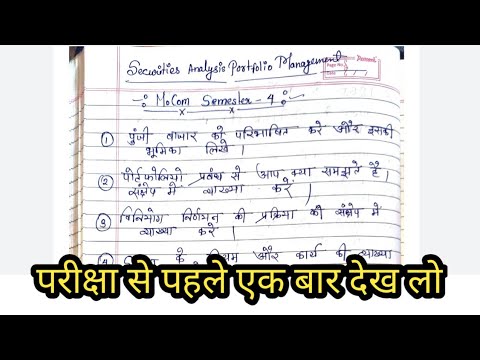 Securities Analysis Portfolio Management
Page No.
Date
M.Com Semester - 4
① पुंजी बाजार को परिभाषित करे और इसकी
भूमिका लिखे ।
② पोर्टफोलियो प्रबंध से आप क्या समझते हैं ।
संक्षेप में व्याख्या करें ।
③ विनियोग निर्णयन की प्रक्रिया को संक्षेप में
व्याख्या करें ।
④ के और कार्य की व्याख्या
परीक्षा से पहले एक बार देख लो